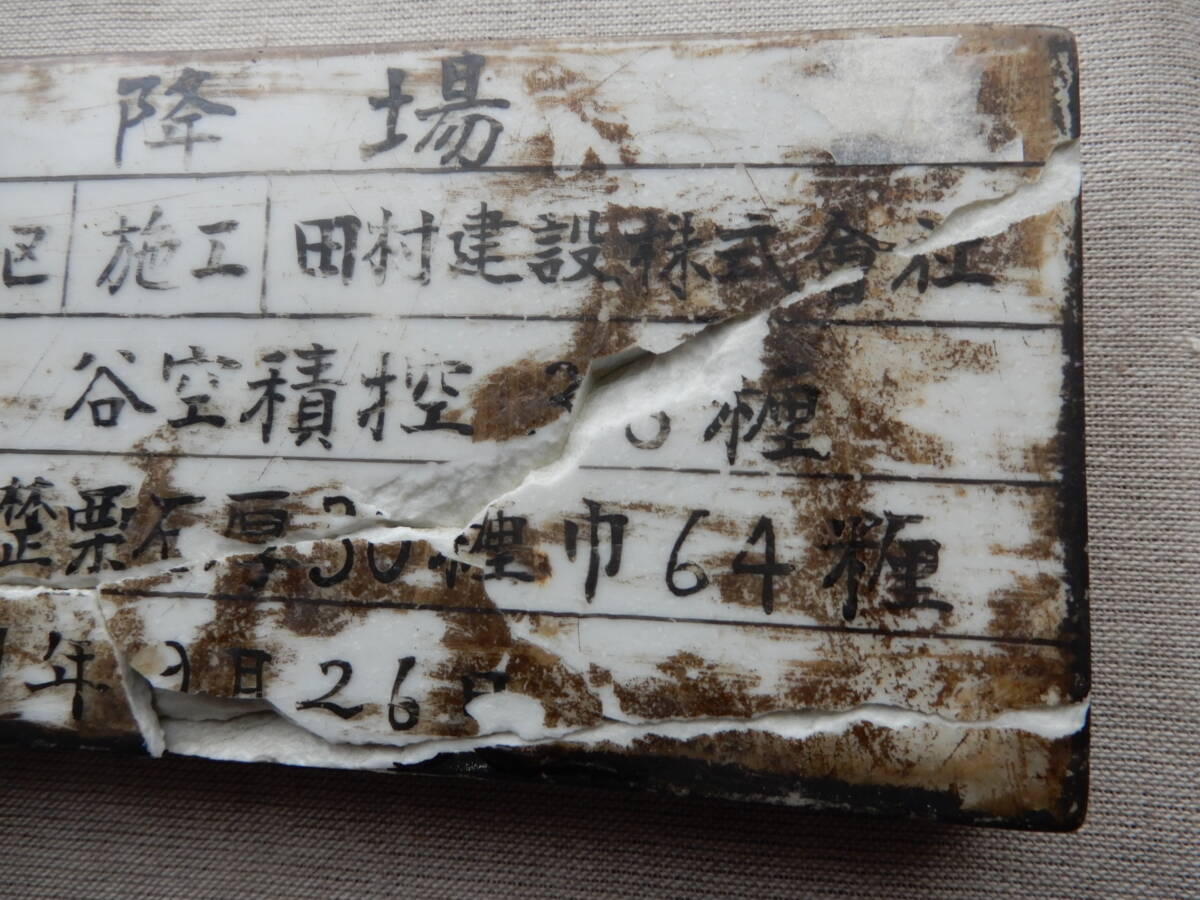 降場
区 施工 田村建設株式會社
谷空積控 糎
栗石厚30糎巾64糎
年 月26日